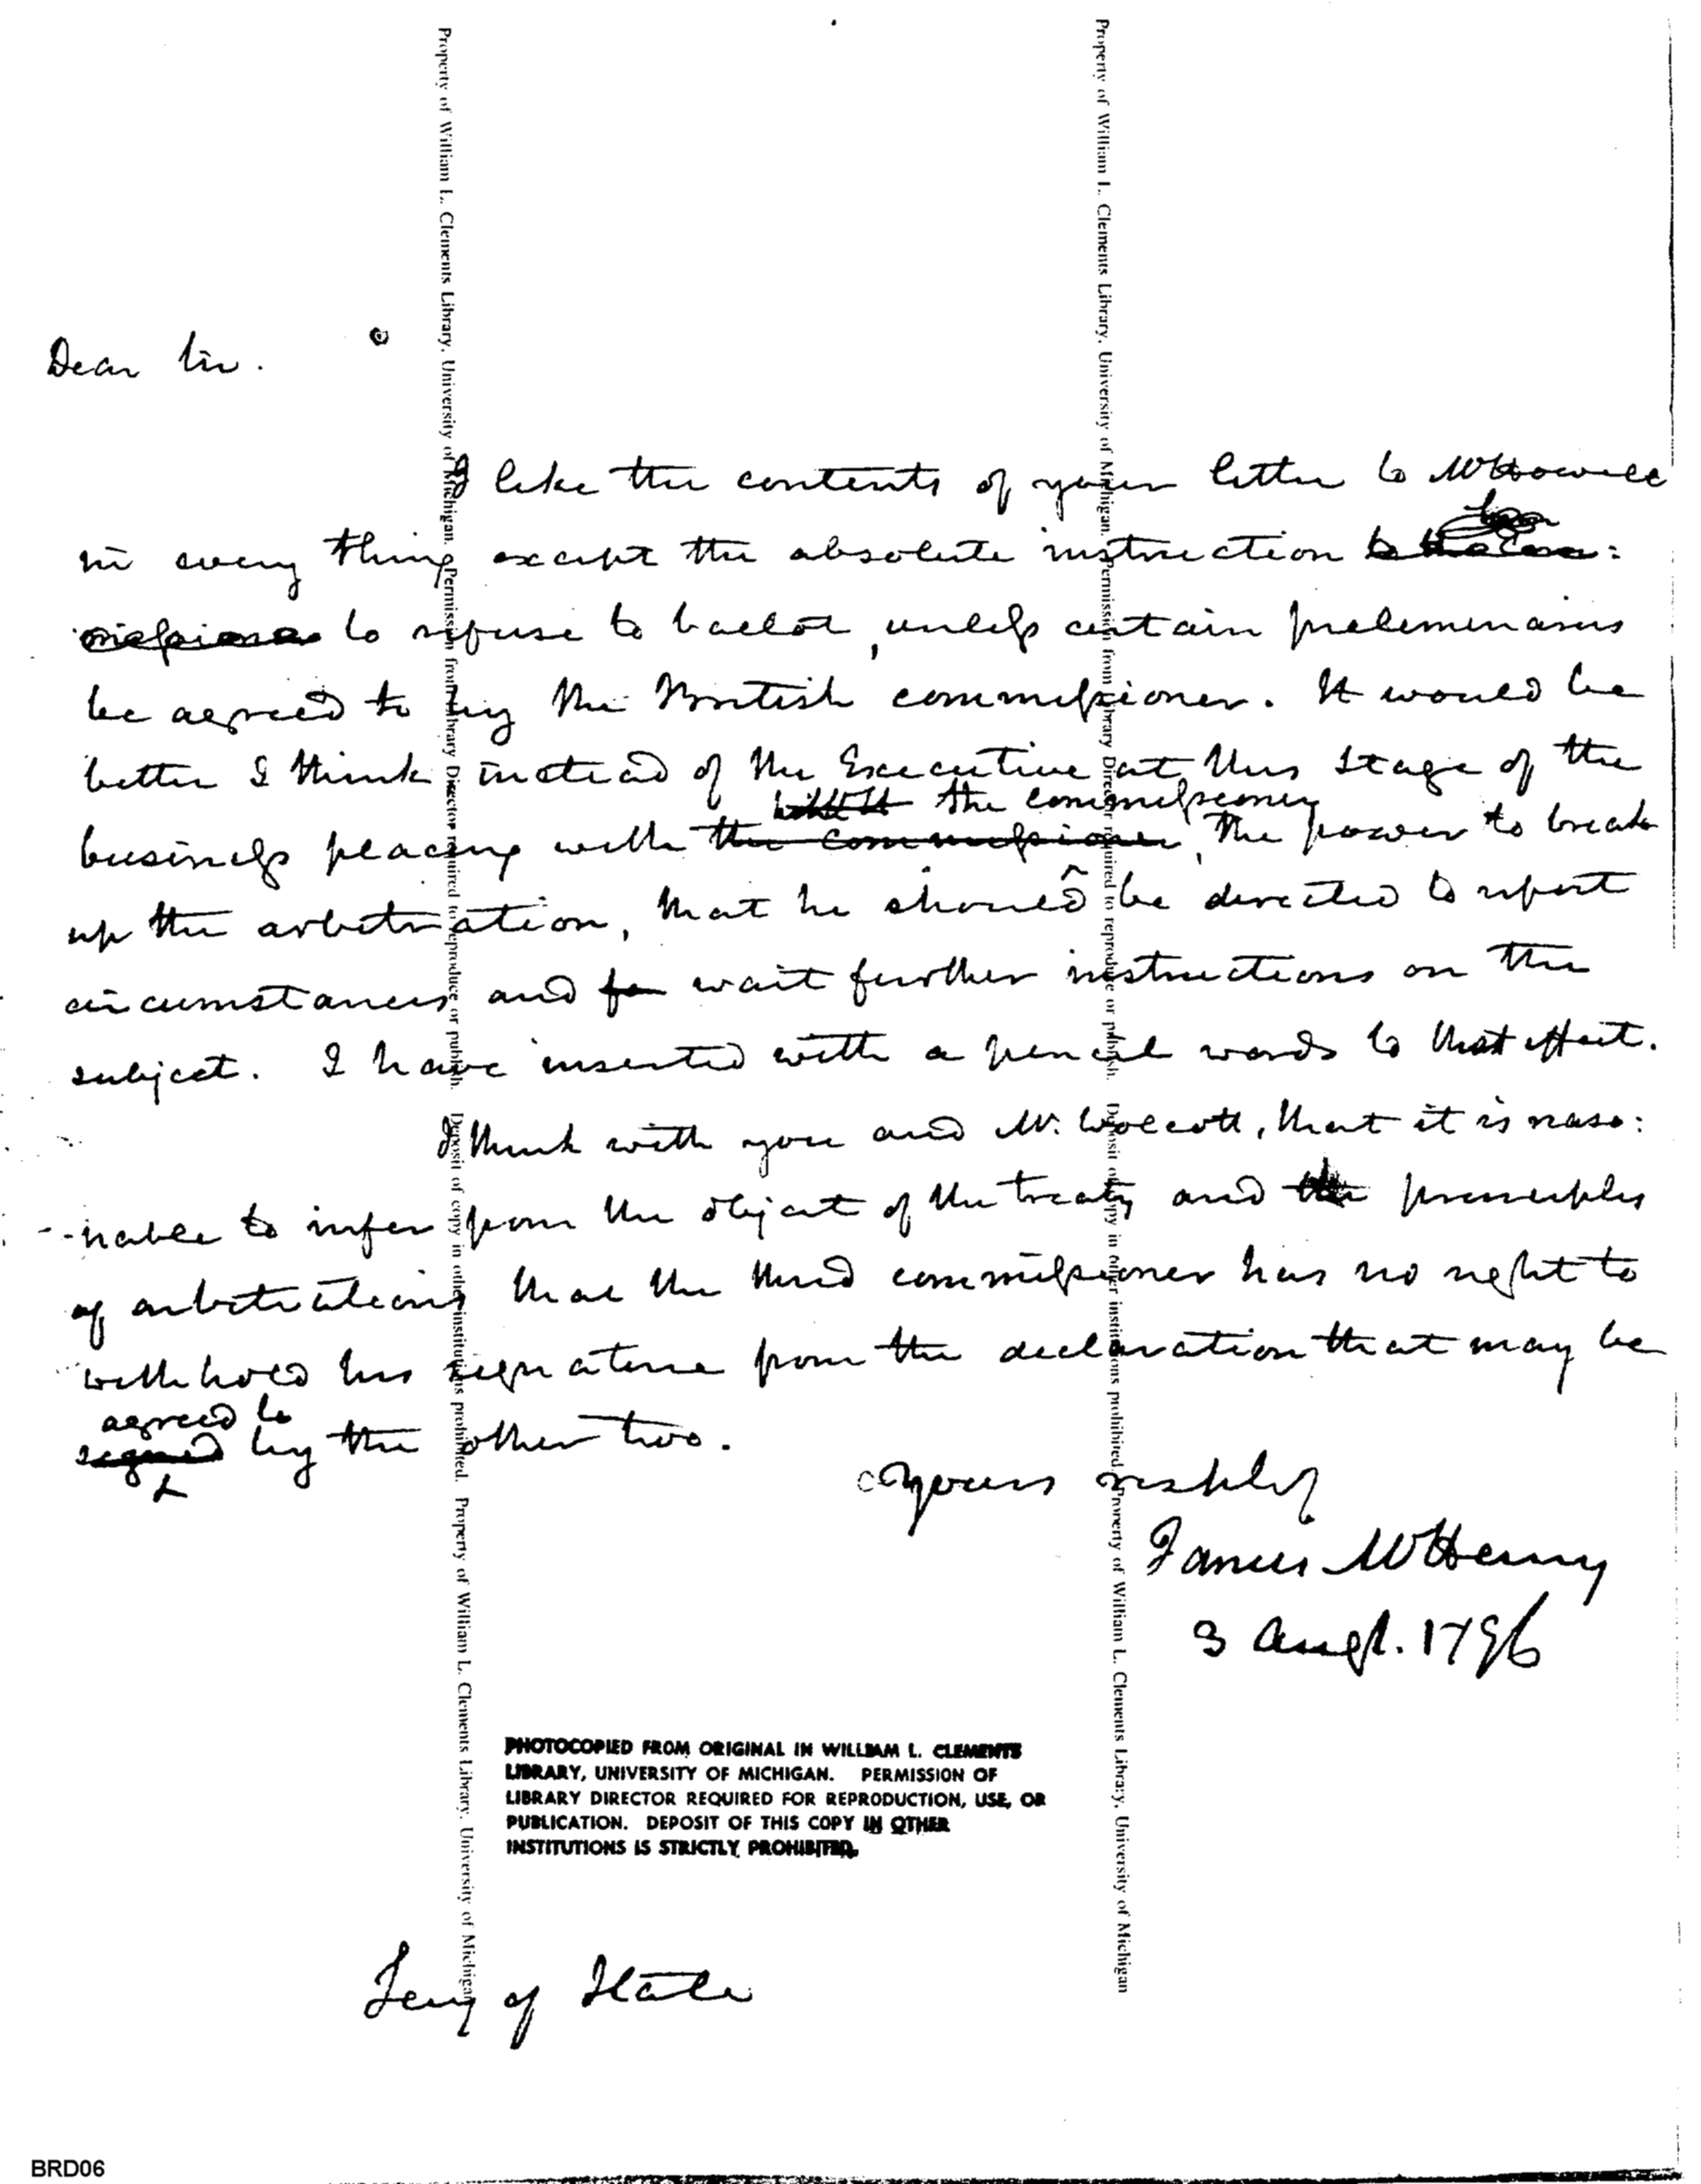 Dear Sir.
I like the contents of your letter to Mr Howell
in every thing except the absolute instruction to the com:
missioner to refuse to ballot, unless certain preliminaries
be agreed to by the British commissioner. It would be
better I think instead of the Executive at this stage of the
the commissioner
business placing with the commissioner, the power to break
^
up the arbitration, that he should be directed to report
circumstances and for wait further instructions on the
subject. I have inserted with a pencil words to that effect.
I think with you and Mr. Wolcott, that it is reaso:
-nable to infer from the object of the treaty and the principles
of arbitrations that the third commissioner has no right to
withhold his signature from the declaration that may be
agreed to
signed by the other two.
Yours respectfully
James McHenry
3 Augt. 1796
PHOTOCOPIED FROM ORIGINAL IN WILLIAM L. CLEMENTS
LIBRARY, UNIVERSITY OF MICHIGAN. PERMISSION OF
LIBRARY DIRECTOR REQUIRED FOR REPRODUCTION, USE, OR
PUBLICATION. DEPOSIT OF THIS COPY IN OTHER
INSTITUTIONS IS STRICTLY PROHIBITED.
Secy of State
BRD06
Property of William L. Clements Library, University of Michigan. Permission from Library Director required to reproduce or publish. Deposit of copy in other institutions prohibited. Property of William L. Clements Library, University of Michigan
Property of William L. Clements Library, University of Michigan. Permission from Library Director required to reproduce or publish. Deposit of copy in other institutions prohibited. Property of William L. Clements Library, University of Michigan